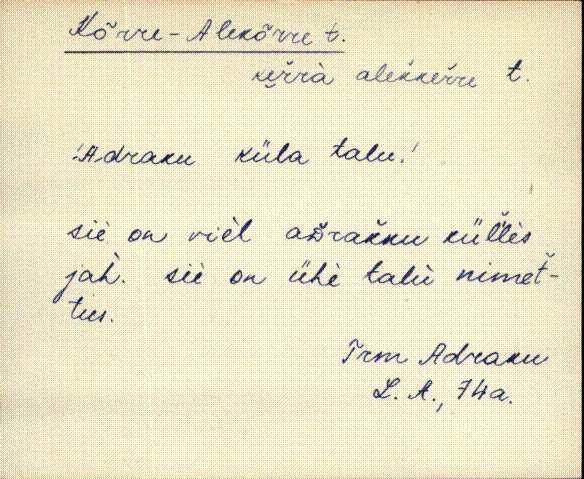 Kõrre-Alekõrre t.
keřrà alekkeřre t.
'Adraku küla talu.'
siè on vièl aDrakku külľès
jah. siè on ühè talù nimet-
tus.
Trm Adraku
L. A., 74a.